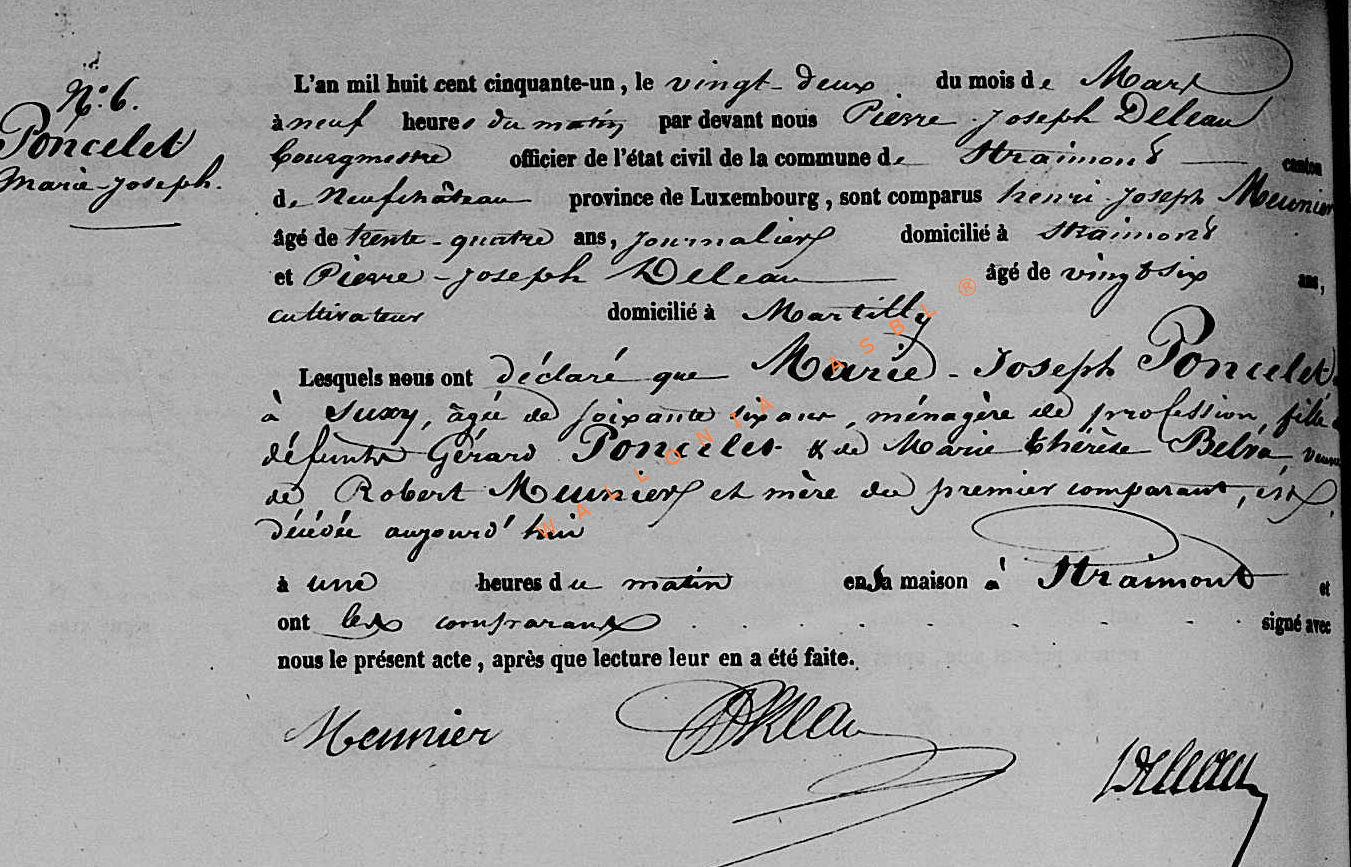 N.º 6.
Poncelet
Marie-Joseph.
L'an mil huit cent cinquante-un, le vingt-deux du mois de Mars
à neuf heures du matin par devant nous Pierre-Joseph Deleau
bourgmestre officier de l'état civil de la commune de Straimont canton
de Neufchâteau province de Luxembourg, sont comparus henri-Joseph Meunier
âgé de trente-quatre ans, journalier domicilié à Straimont
et Pierre-Joseph Deleau âgé de vingt six ans,
cultivateur domicilié à Martilly
Lesquels nous ont déclaré que Marie-Joseph Poncelet
à Suxy, âgée de soixante six ans, ménagère de profession, fille
défunts Gérard Poncelet & de Marie thérèse Belva, veuve
de Robert Meunier et mère du premier comparant, est
décédée aujourd'hui
à une heures du matin en sa maison à Straimont et
ont les comparants signé avec
nous le présent acte, après que lecture leur en a été faite.
Meunier Deleau
Deleau
WALLONIA ASBL ®